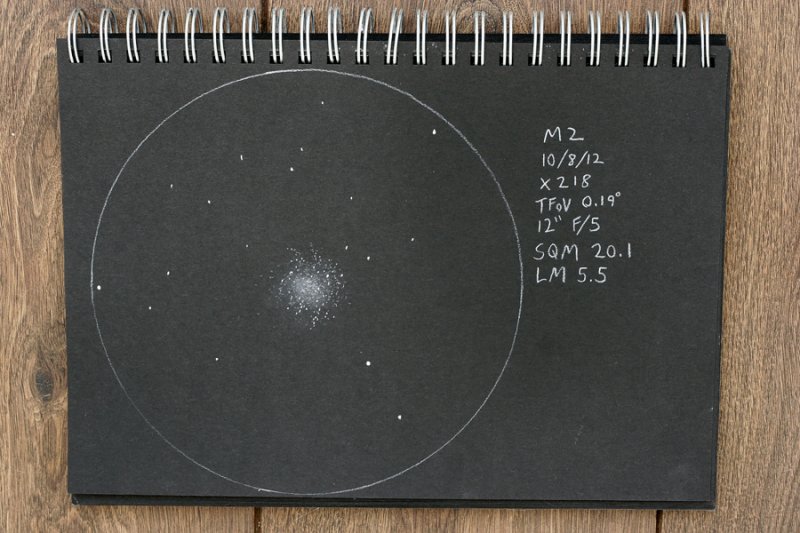 M2
10/8/12
x 218
TFoV 0.19°
12" F/5
SQM 20.1
LM 5.5